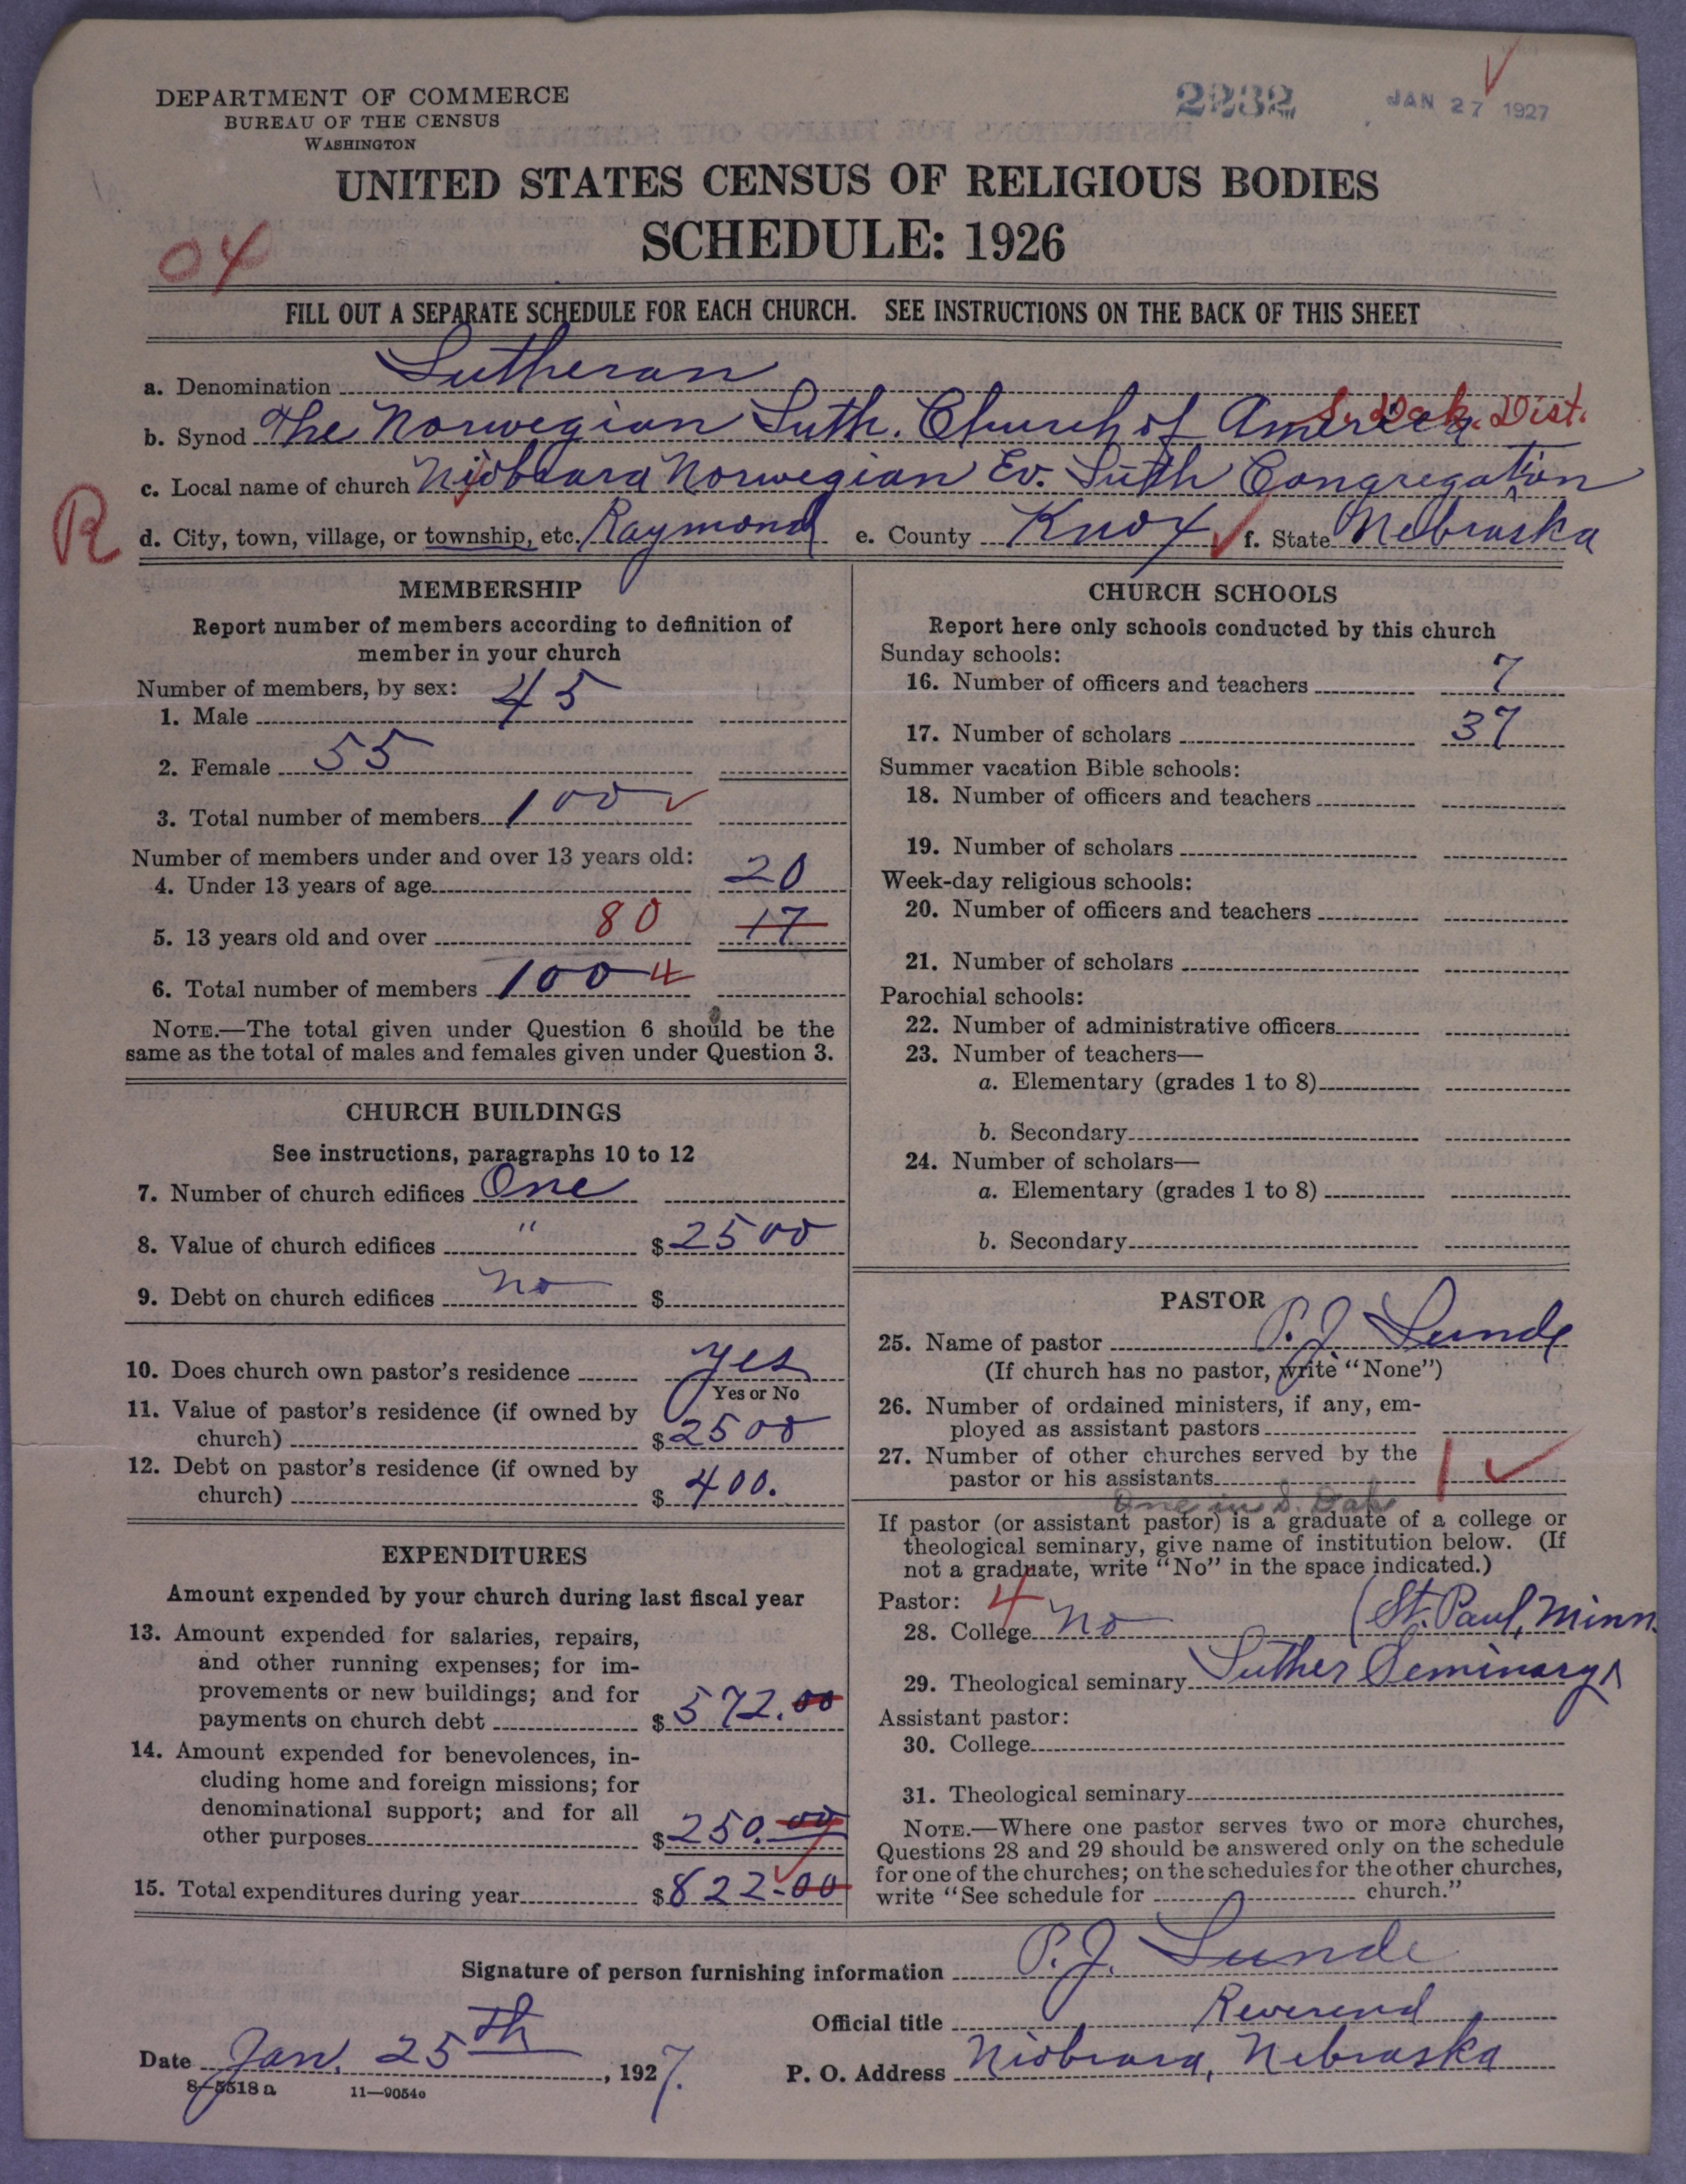 DEPARTMENT OF COMMERCE
BUREAU OF THE CENSUS
WASHINGTON
2232
JAN 27 1927
UNITED STATES CENSUS OF RELIGIOUS BODIES
SCHEDULE: 1926
04
FILL OUT A SEPARATE SCHEDULE FOR EACH CHURCH. SEE INSTRUCTIONS ON THE BACK OF THIS SHEET
a. Denomination Lutheran
b. Synod The Norwegian Luth. Church of America S. Dak. Dist.
c. Local name of church Niobrara Norwegian Ev. Luth Congregation
R
d. City, town, village, or township, etc. Raymond e. County Knox f. State Nebraska
MEMBERSHIP
Report number of members according to definition of
member in your church
Number of members, by sex:
1. Male 45
2. Female 55
3. Total number of members 100
Number of members under and over 13 years old:
4. Under 13 years of age 20
5. 13 years old and over 80 17
6. Total number of members 100 4
NOTE.—The total given under Question 6 should be the
same as the total of males and females given under Question 3.
CHURCH BUILDINGS
See instructions, paragraphs 10 to 12
7. Number of church edifices One
8. Value of church edifices " $2500
9. Debt on church edifices no $
10. Does church own pastor's residence yes
Yes or No
11. Value of pastor's residence (if owned by
church) $2500
12. Debt on pastor's residence (if owned by
church) $400.
EXPENDITURES
Amount expended by your church during last fiscal year
13. Amount expended for salaries, repairs,
and other running expenses; for im-
provements or new buildings; and for
payments on church debt $572.00
14. Amount expended for benevolences, in-
cluding home and foreign missions; for
denominational support; and for all
other purposes $250.00
15. Total expenditures during year $822.00
CHURCH SCHOOLS
Report here only schools conducted by this church
Sunday schools:
16. Number of officers and teachers 7
17. Number of scholars 37
Summer vacation Bible schools:
18. Number of officers and teachers
19. Number of scholars
Week-day religious schools:
20. Number of officers and teachers
21. Number of scholars
Parochial schools:
22. Number of administrative officers
23. Number of teachers—
a. Elementary (grades 1 to 8)
b. Secondary
24. Number of scholars—
a. Elementary (grades 1 to 8)
b. Secondary
PASTOR
25. Name of pastor P. J. Lunde
(If church has no pastor, write "None")
26. Number of ordained ministers, if any, em-
ployed as assistant pastors
27. Number of other churches served by the
pastor or his assistants 1
One in S. Dak
If pastor (or assistant pastor) is a graduate of a college or
theological seminary, give name of institution below. (If
not a graduate, write "No" in the space indicated.)
Pastor: 4
28. College No (St. Paul, Minn.
29. Theological seminary Luther Seminary
Assistant pastor:
30. College
31. Theological seminary
NOTE.—Where one pastor serves two or more churches,
Questions 28 and 29 should be answered only on the schedule
for one of the churches; on the schedules for the other churches,
write "See schedule for church."
Signature of person furnishing information P. J. Lunde
Official title Reverend
Date Jan. 25th, 1927. P. O. Address Niobrara, Nebraska
8-5518a 11—9054c